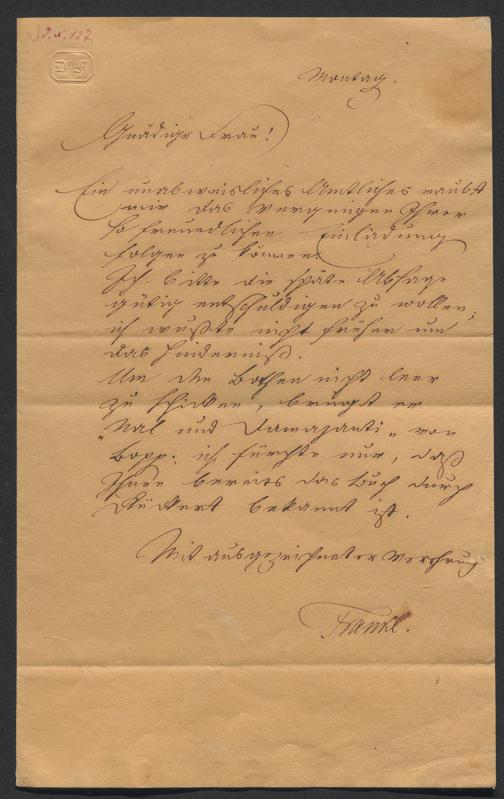 J.N. 127
Montag.
Gnädige Frau!
Ein unabweisliches Amtliches raubt
mir das Vergnügen Ihrer
so freundlichen Einladung
folgen zu können.
Ich bitte die späte Absage
gütig entschuldigen zu wollen,
ich wußte nicht früher um
das Hinderniß.
Um den Bothen nicht leer
zu schicken, bringt er
"Nal und Damajanti" von
Bopp; ich fürchte nur, daß
Ihnen bereits das Buch durch
Rückert bekannt ist.
Mit ausgezeichneter Verehrung
Frankl.